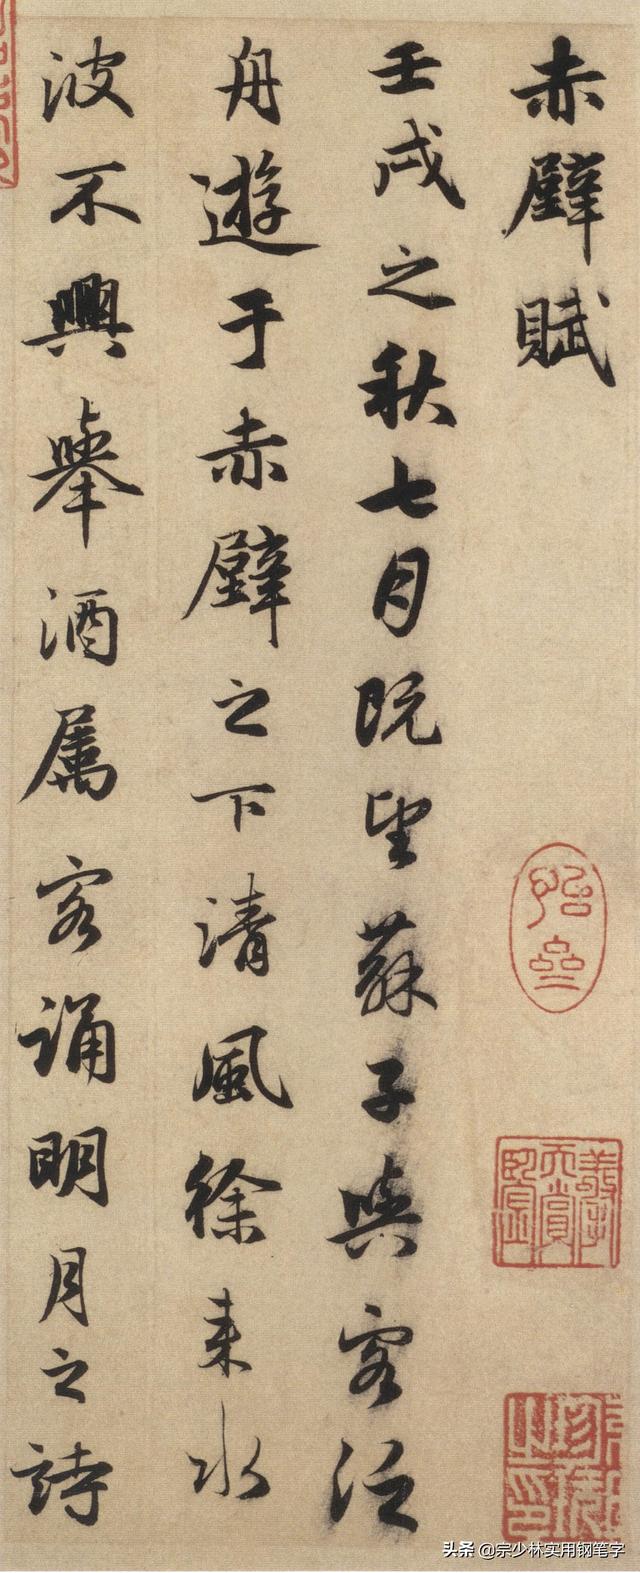 赤壁賦
壬戌之秋七月既望蘇子與客泛
舟遊于赤壁之下清風徐来水
波不興舉酒属客誦明月之詩
头条 @宗少林实用钢笔字